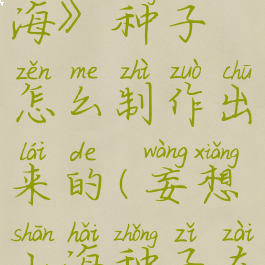 海》种子
zěn me zhì zuò chū
怎么制作出
lái de wàng xiǎng
来的(妄想
shān hǎi zhǒng zǐ zài
山海种子在